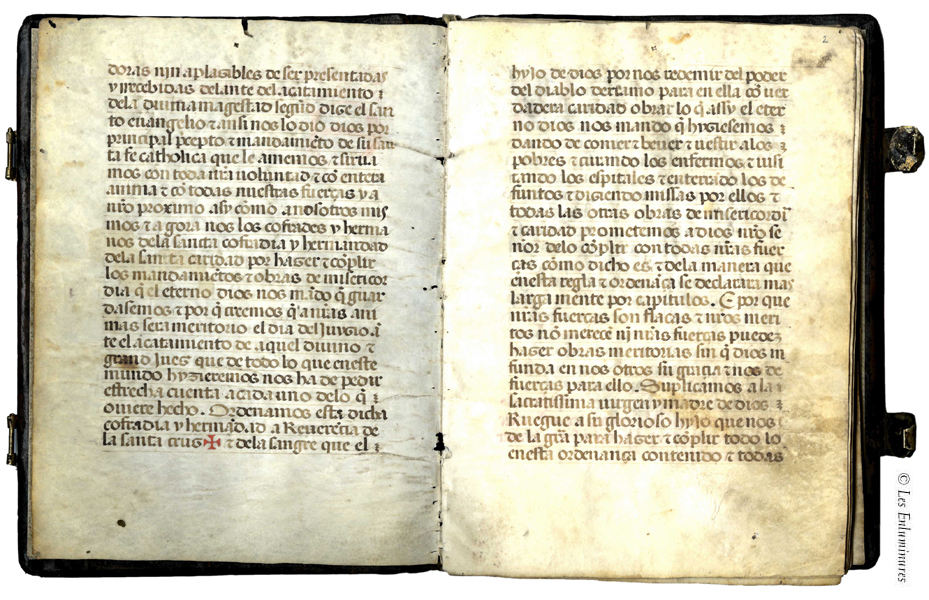 doras nin aplasibles de ser presentadas
y rrecebidas delante del acatamiento ⁊
dela diuina magestad segūd dize el san
to euangelio ⁊ ansi nos lo dio dios por
principal p̄cepto ⁊ mandamiēto de su san
ta fe catholica que le amemos ⁊ sirua
mos con toda nr̄a uoluntad ⁊ cō entera
anima ⁊ cō todas nuestras fuerças y a
nr̄o proximo asy como a nosotros mis
mos ⁊ a gora nos los cofrades y herma
nos dela sancta cofradia y hermandad
dela sancta caridad por hazer ⁊ cōplir
los mandamiētos ⁊ obras de misericor
dia q̄ el eterno dios nos mādo q̄ guar
dasemos ⁊ por q̄ creemos q̄ a nr̄as ani
mas sera meritorio el dia del juyzio ā
te el acatamiento de aquel diuino ⁊
grand juez que de todo lo que eneste
mundo hyzieremos nos ha de pedir
estrecha cuenta a cada uno delo q̄ ⁊
ouiere hecho. Ordenamos esta dicha
cofradia y hermādad a Reuerēcia de
la santa cruz ✠ ⁊ dela sangre que el ⁊
2
hyjo de dios por nos redemir del poder
del diablo derramo para en ella cō uer
dadera caridad obrar lo q̄ assy el eter
no dios nos mando q̄ hyziesemos ⁊
dando de comer ⁊ beuer ⁊ uestir a los ⁊
pobres ⁊ curando los enfermos ⁊ uisi
tando los espitales ⁊ enterrādo los de
funtos ⁊ diziendo missas por ellos ⁊
todas las otras obras de misericordia
⁊ caridad prometemos a dios nr̄o se
ñor delo cōplir con todas nr̄as fuer
ças como dicho es ⁊ dela manera que
enesta regla ⁊ ordenāça se declarara mas
larga mente por capitulos. E por que
nr̄as fuerças son flacas ⁊ nr̄os meri
tos nō merecē ni nr̄as fuerças puedēz
hazer obras meritorias sin q̄ dios in
funda en nos otros su gracia ⁊ nos de
fuerças para ello. Suplicamos a la ⁊
sacratissima uirgen y madre de dios ⁊
Ruegue a su glorioso hyjo que nos ⁊
de la gr̄a para hazer ⁊ cōplir todo lo
enesta ordenança contenido ⁊ todas
© Les Enluminures